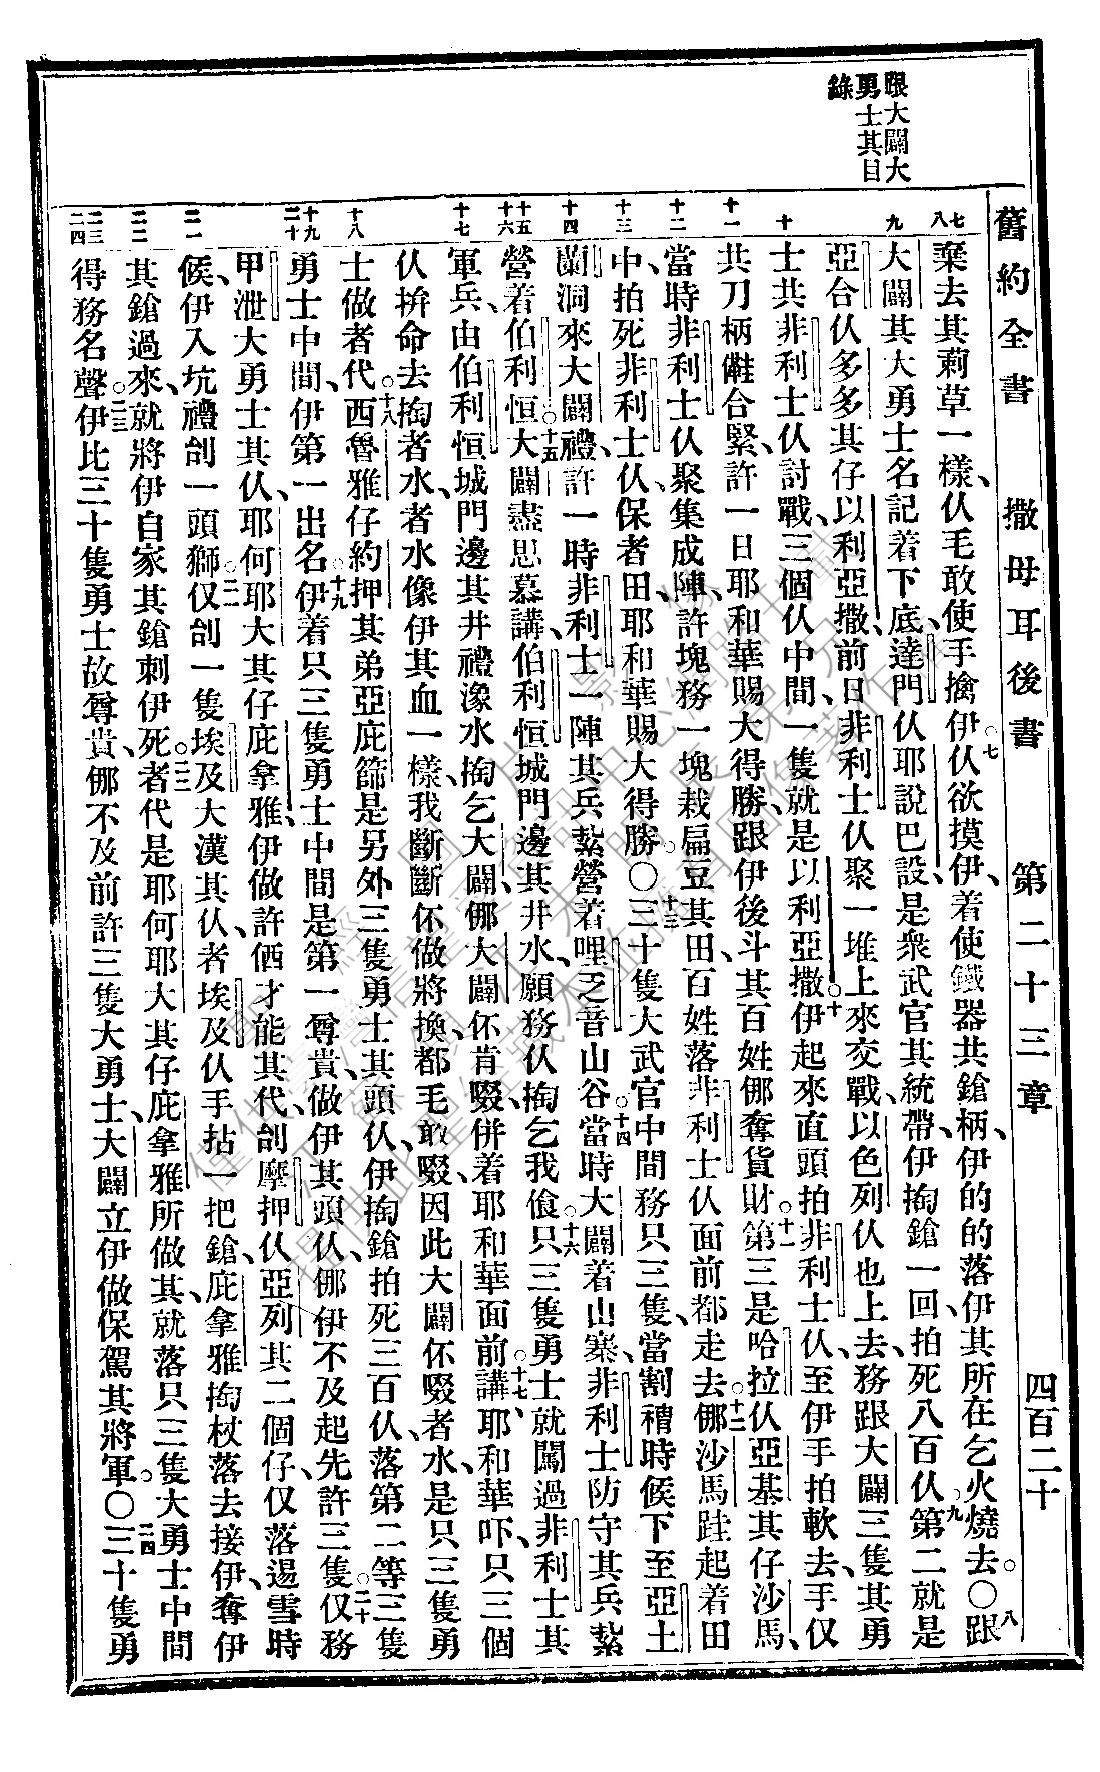 跟大闢大
勇士其目
錄
舊約全書 撒母耳後書 第二十三章 四百二十
七 八 九 十 十一 十二 十三 十四 十五 十六 十七 十八 十九 二十 二一 二二 二三 二四
棄去其莿草一樣、仈毛敢使手擒伊。七仈欲摸伊、着使鐵器共鎗柄、伊的的落伊其所在乞火燒去。〇八跟
大闢其大勇士名記着下底、達門仈耶說巴設是衆武官其統帶、伊掏鎗一回、拍死八百仈。九第二就是
亞合仈多多其仔以利亞撒、前日非利士仈聚一堆上來交戰、以色列仈也上去、務跟大闢三隻其勇
士共非利士仈討戰、三個仈中間一隻就是以利亞撒。十伊起來直頭拍非利士仈、至伊手拍軟去、手仅
共刀柄㒕合緊、許一日耶和華賜大得勝、跟伊後斗其百姓㑚奪貨財。十一第三是哈拉仈亞基其仔沙馬、
當時非利士仈聚集成陣、許塊務一塊栽扁豆其田、百姓落非利士仈面前都走去。十二㑚沙馬䟕起着田
中、拍死非利士仈、保者田、耶和華賜大得勝。〇十三三十隻大武官中間務只三隻、當割䆀時候下至亞土
蘭洞來大闢禮、許一時非利士一陣其兵紮營着哩乏音山谷。十四當時大闢着山寨、非利士防守其兵紮
營着伯利恒。十五大闢盡思慕講、伯利恒城門邊其井水、願務仈掏乞我飲。十六只三隻勇士就闖過非利士其
軍兵、由伯利恒城門邊其井禮潒水掏乞大闢、㑚大闢伓肯啜、併着耶和華面前。十七講、耶和華吓、只三個
仈拚命去掏者水、者水像伊其血一樣、我斷斷伓做將換、都毛敢啜、因此大闢伓啜者水、是只三隻勇
士做者代。十八西魯雅仔約押其弟亞庇篩是另外三隻勇士其頭仈、伊掏鎗拍死三百仈、落第二等三隻
勇士中間、伊第一出名。十九伊着只三隻勇士中間是第一尊貴、做伊其頭仈、㑚伊不及起先許三隻。二十仅務
甲泄大勇士其仈、耶何耶大其仔庇拿雅、伊做許価才能其代、刣摩押仈亞列其二個仔、仅落逿雪時
候、伊入坑禮刣一頭獅。二一仅刣一隻埃及大漢其仈、者埃及仈手拈一把鎗、庇拿雅掏杖落去接伊、奪伊
其鎗過來、就將伊自家其鎗刺伊死。二二者代是耶何耶大其仔庇拿雅所做其、就落只三隻大勇士中間
得務名聲。二三伊比三十隻勇士故尊貴、㑚不及前許三隻大勇士、大闢立伊做保駕其將軍。〇二四三十隻勇